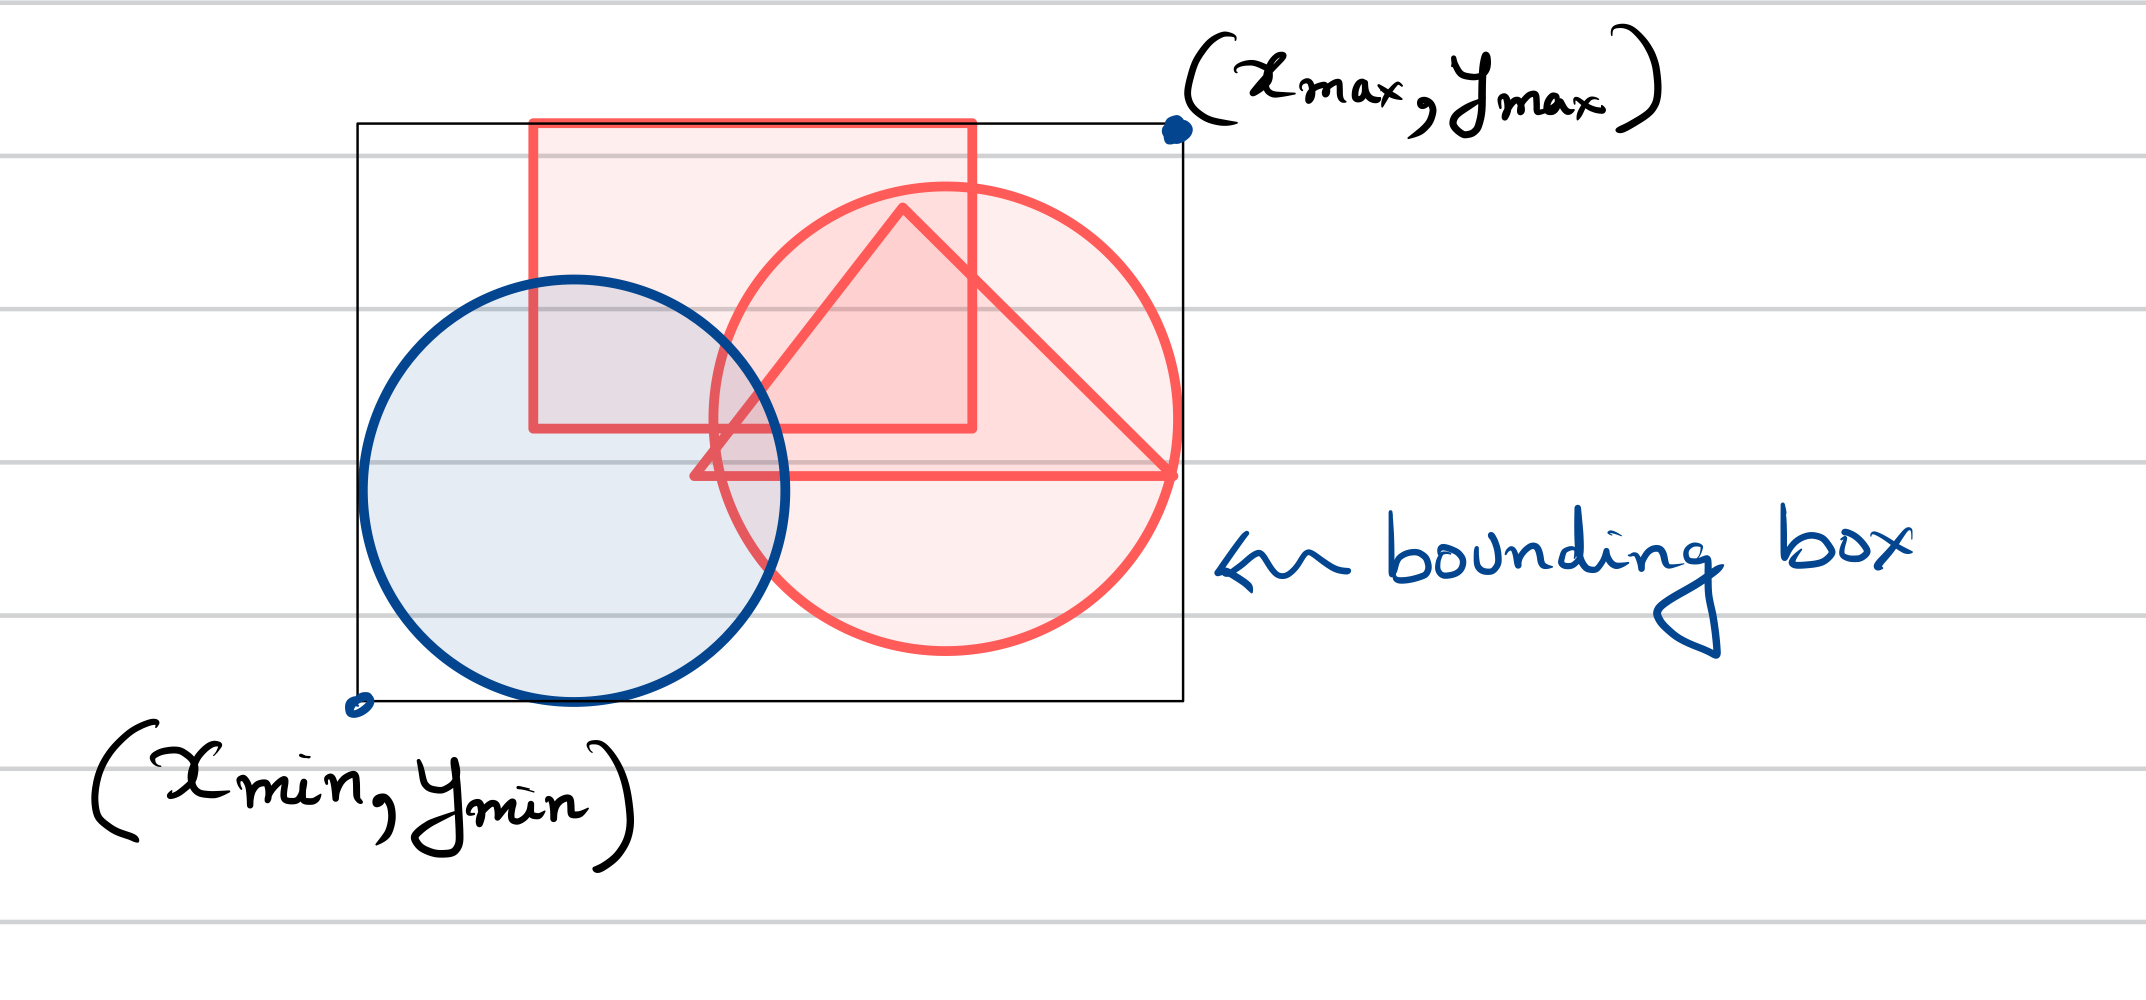 (x_max, y_max)
bounding box
(x_min, y_min)